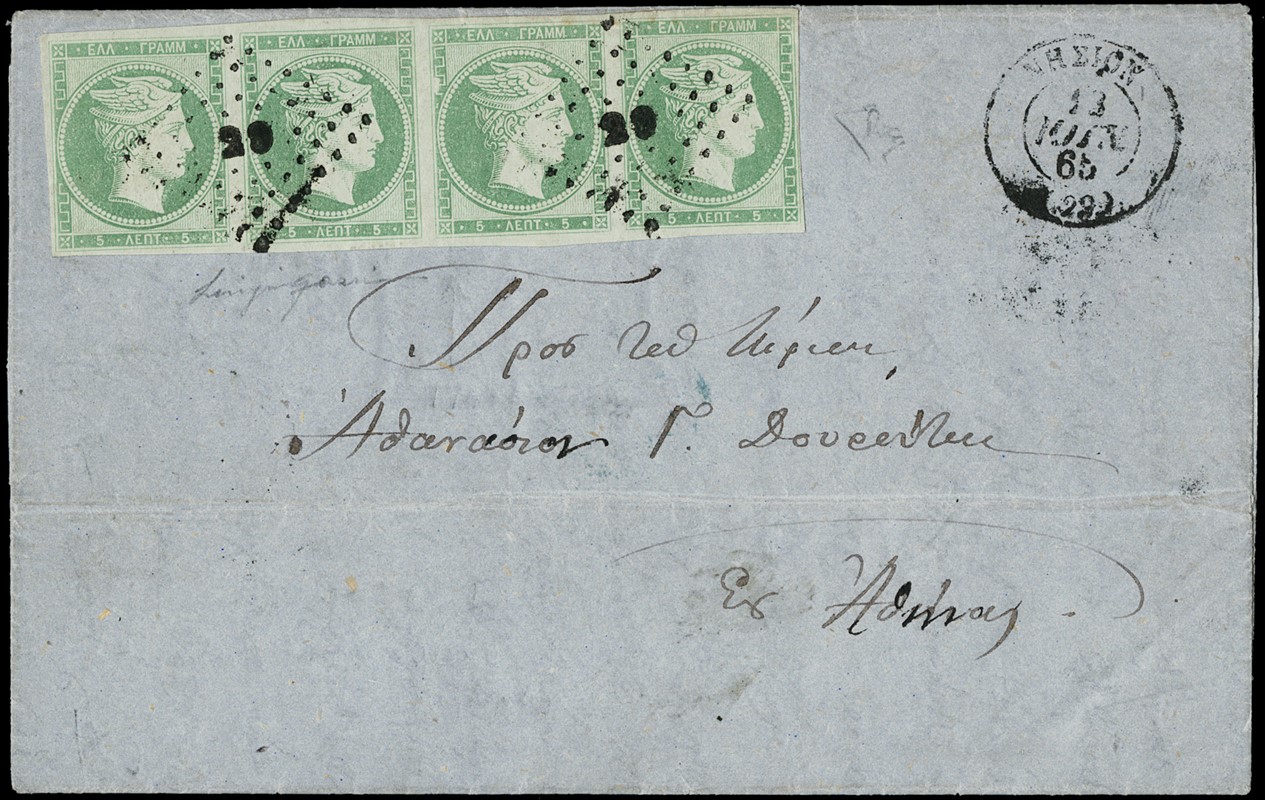 ΕΛΛ ΓΡΑΜΜ ΕΛΛ ΓΡΑΜΜ ΕΛΛ ΓΡΑΜΜ ΕΛΛ ΓΡΑΜΜ
29 29
5 ΛΕΠΤ 5 5 ΛΕΠΤ 5 5 ΛΕΠΤ 5 5 ΛΕΠΤ 5
ΝΗΣΙΟΝ
13
65
(29)
Προς τον Κύριον
Ἀθανάσιον Γ.
Εις Ἀθήνας